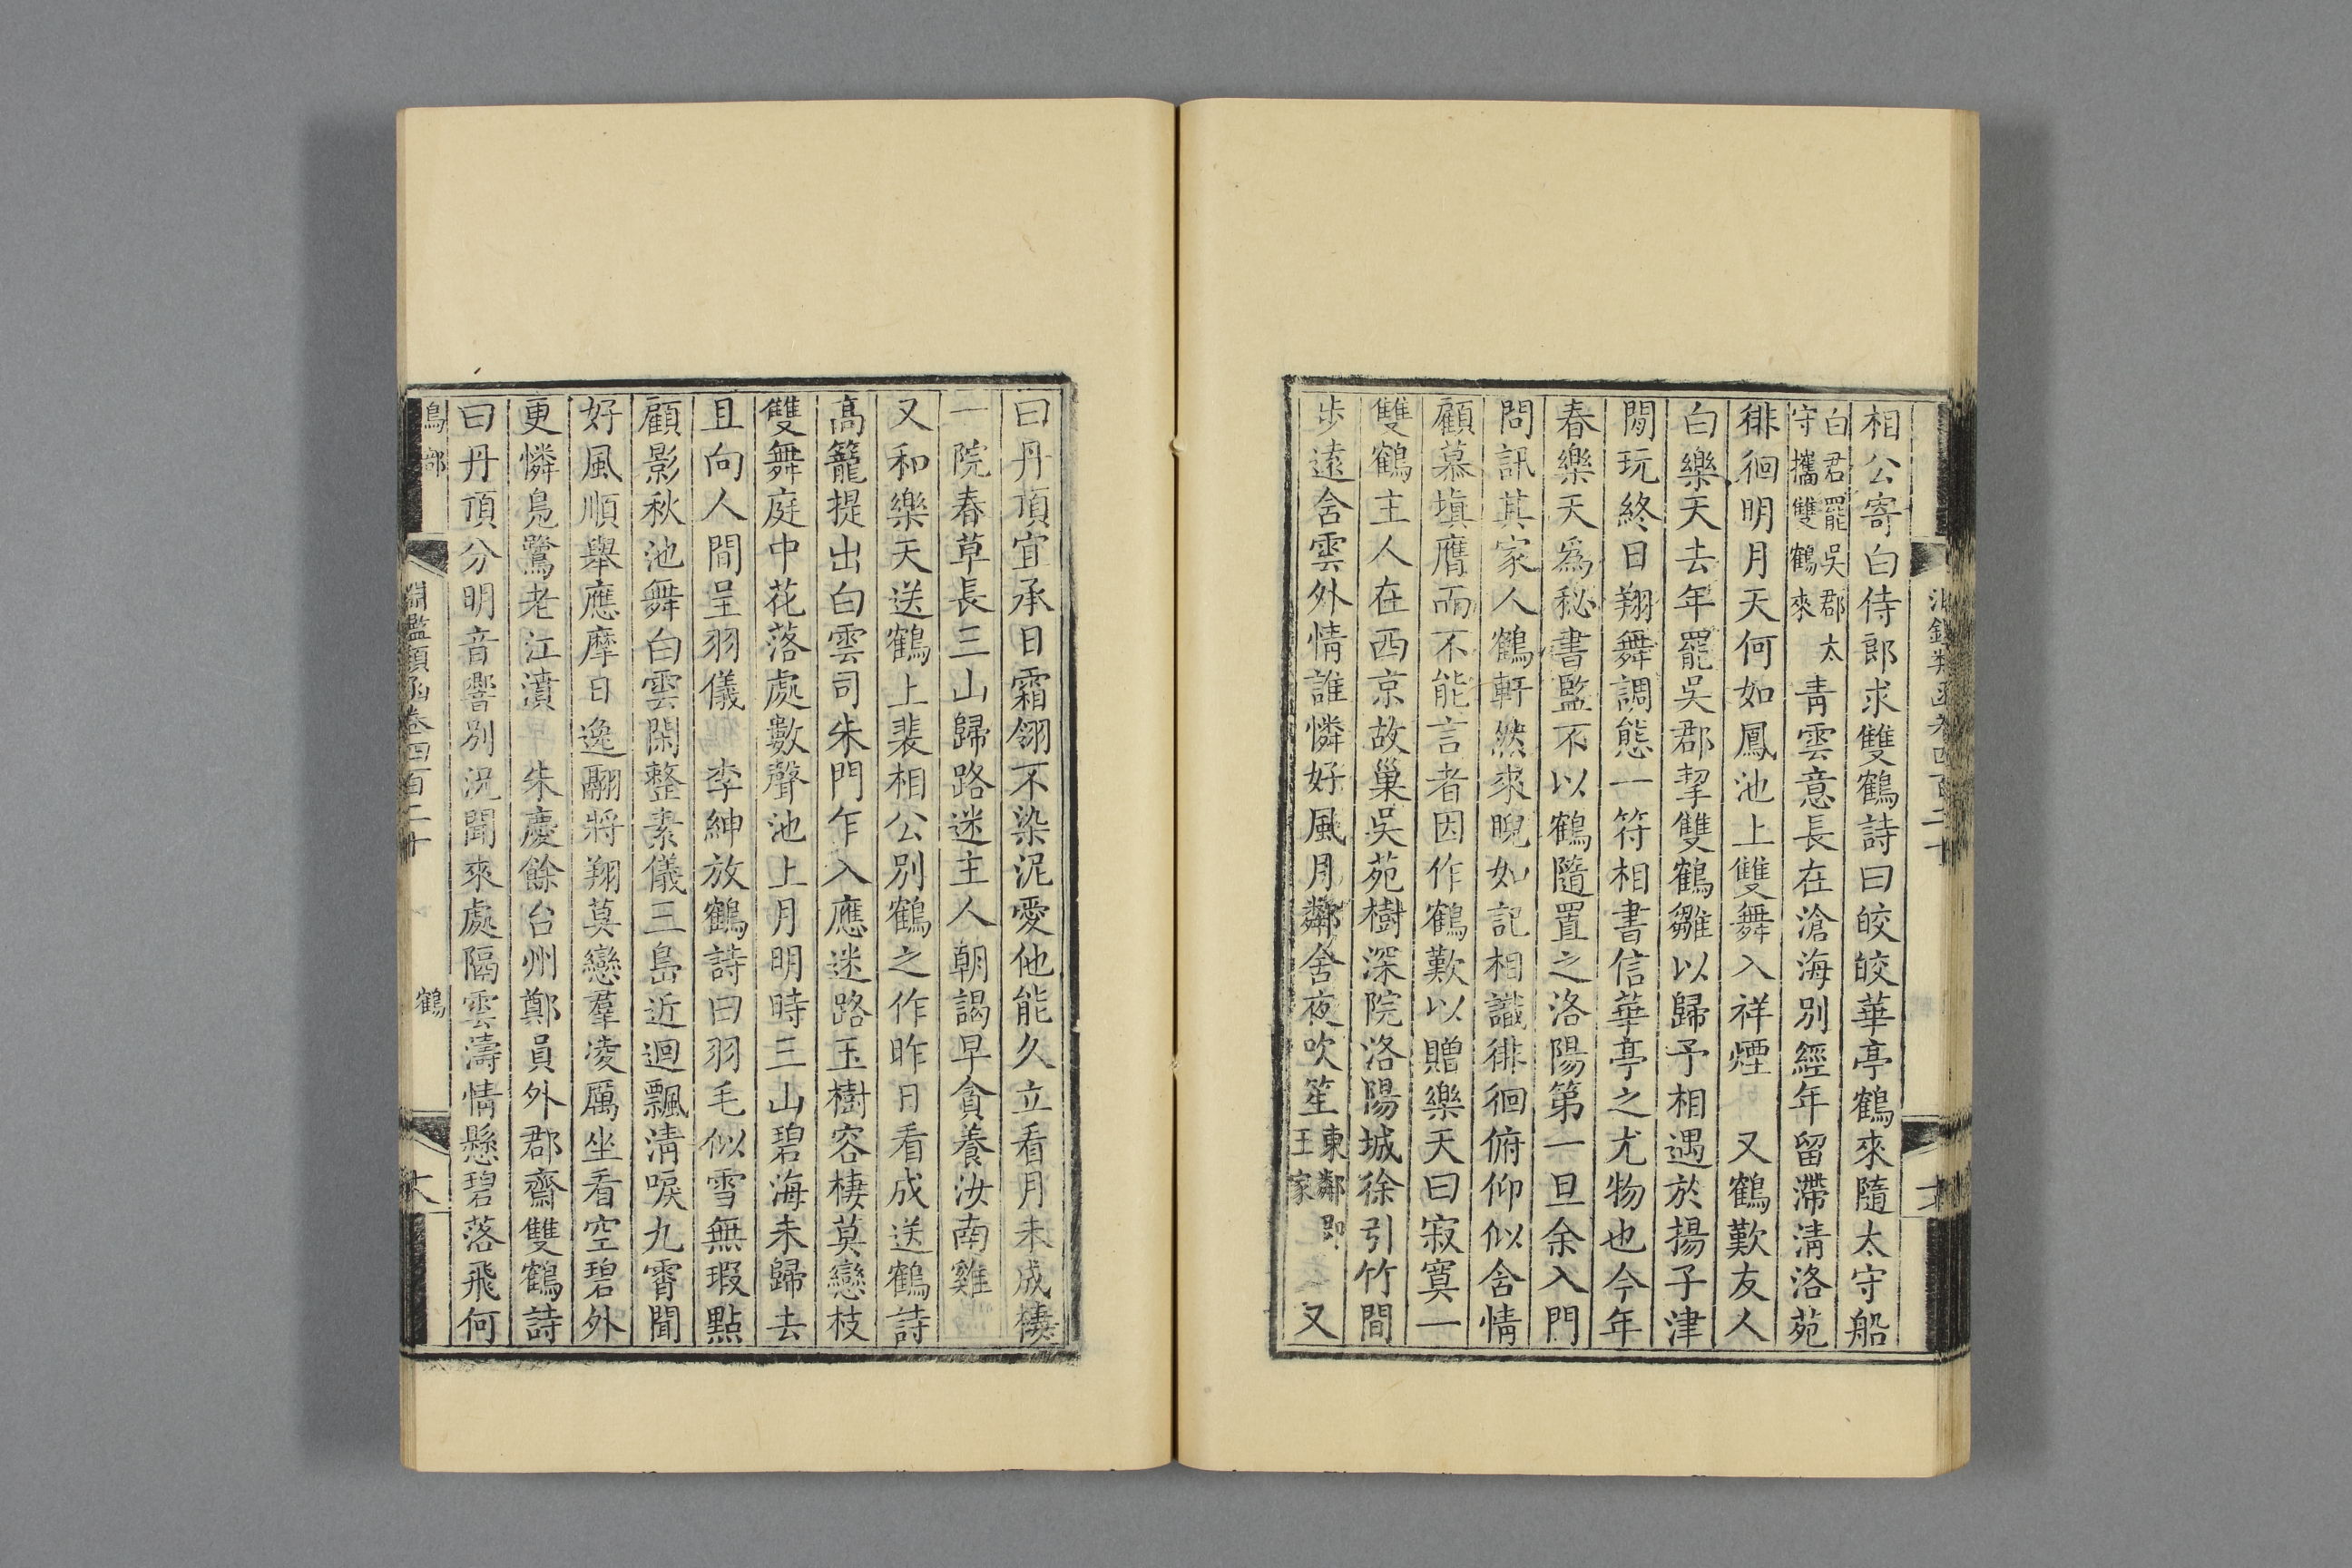 相公寄白侍郎求雙鶴詩曰皎皎華亭鶴來隨太守船
白君罷吳郡太守攜雙鶴來青雲意長在滄海別經年留滯清洛苑
徘徊明月天何如鳳池上雙舞入祥煙 又鶴歎友人
白樂天去年罷吳郡挈雙鶴雛以歸予相遇於揚子津
閒玩終日翔舞調態一符相書信華亭之尤物也今年
春樂天爲秘書監不以鶴隨置之洛陽第一旦余入門
問訊其家人鶴軒然來睨如記相識徘徊俯仰似含情
顧慕塡膺而不能言者因作鶴歎以贈樂天曰寂寞一
雙鶴主人在西京故巢吳苑樹深院洛陽城徐引竹間
步遠含雲外情誰憐好風月鄰舍夜吹笙東鄰即王家 又
曰丹頂宜承日霜翎不染泥愛他能久立看月未成棲
一院春草長三山歸路迷主人朝謁早貪養汝南雞
又和樂天送鶴上裴相公別鶴之作昨日看成送鶴詩
高籠提出白雲司朱門乍入應迷路玉樹容棲莫戀枝
雙舞庭中花落處數聲池上月明時三山碧海未歸去
且向人間呈羽儀 李紳放鶴詩曰羽毛似雪無瑕點
顧影秋池舞白雲閑整素儀三島近迴飄清唳九霄聞
好風順舉應摩日逸翮將翔莫戀羣凌厲坐看空碧外
更憐鳧鷺老江濆 朱慶餘台州鄭員外郡齋雙鶴詩
曰丹頂分明音響別況聞來處隔雲濤情懸碧落飛何
鳥部 淵鑑類函卷四百二十 鶴